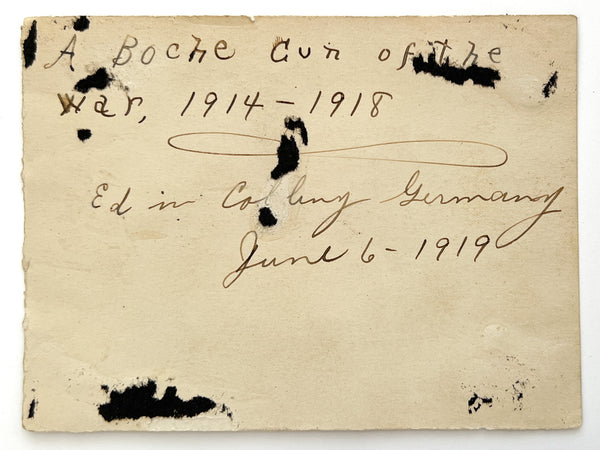 A Boche Gun of the
war, 1914-1918
Ed in Germany
June 6-1919